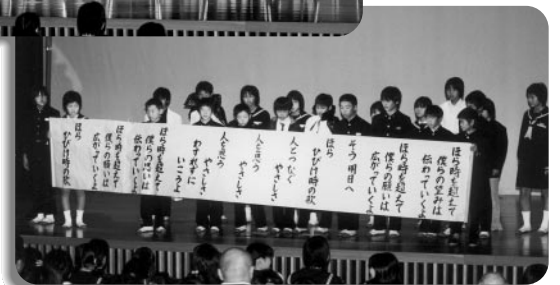 ほら時を超えて
僕らの望みは
伝わっていくよ
ほら時を超えて
僕らの願いは
広がっていくよ
そう明日へ
ほら
ひびけ時の歌
人とつなぐ
やさしさ
人を思う
やさしさ
人を思う
やさしさ
わすれずに
いこうよ
ほら時を超えて
僕らの思いは
伝わっていくよ
ほら時を超えて
僕らの願いは
広がっていくよ
ほら
ひびけ時の歌